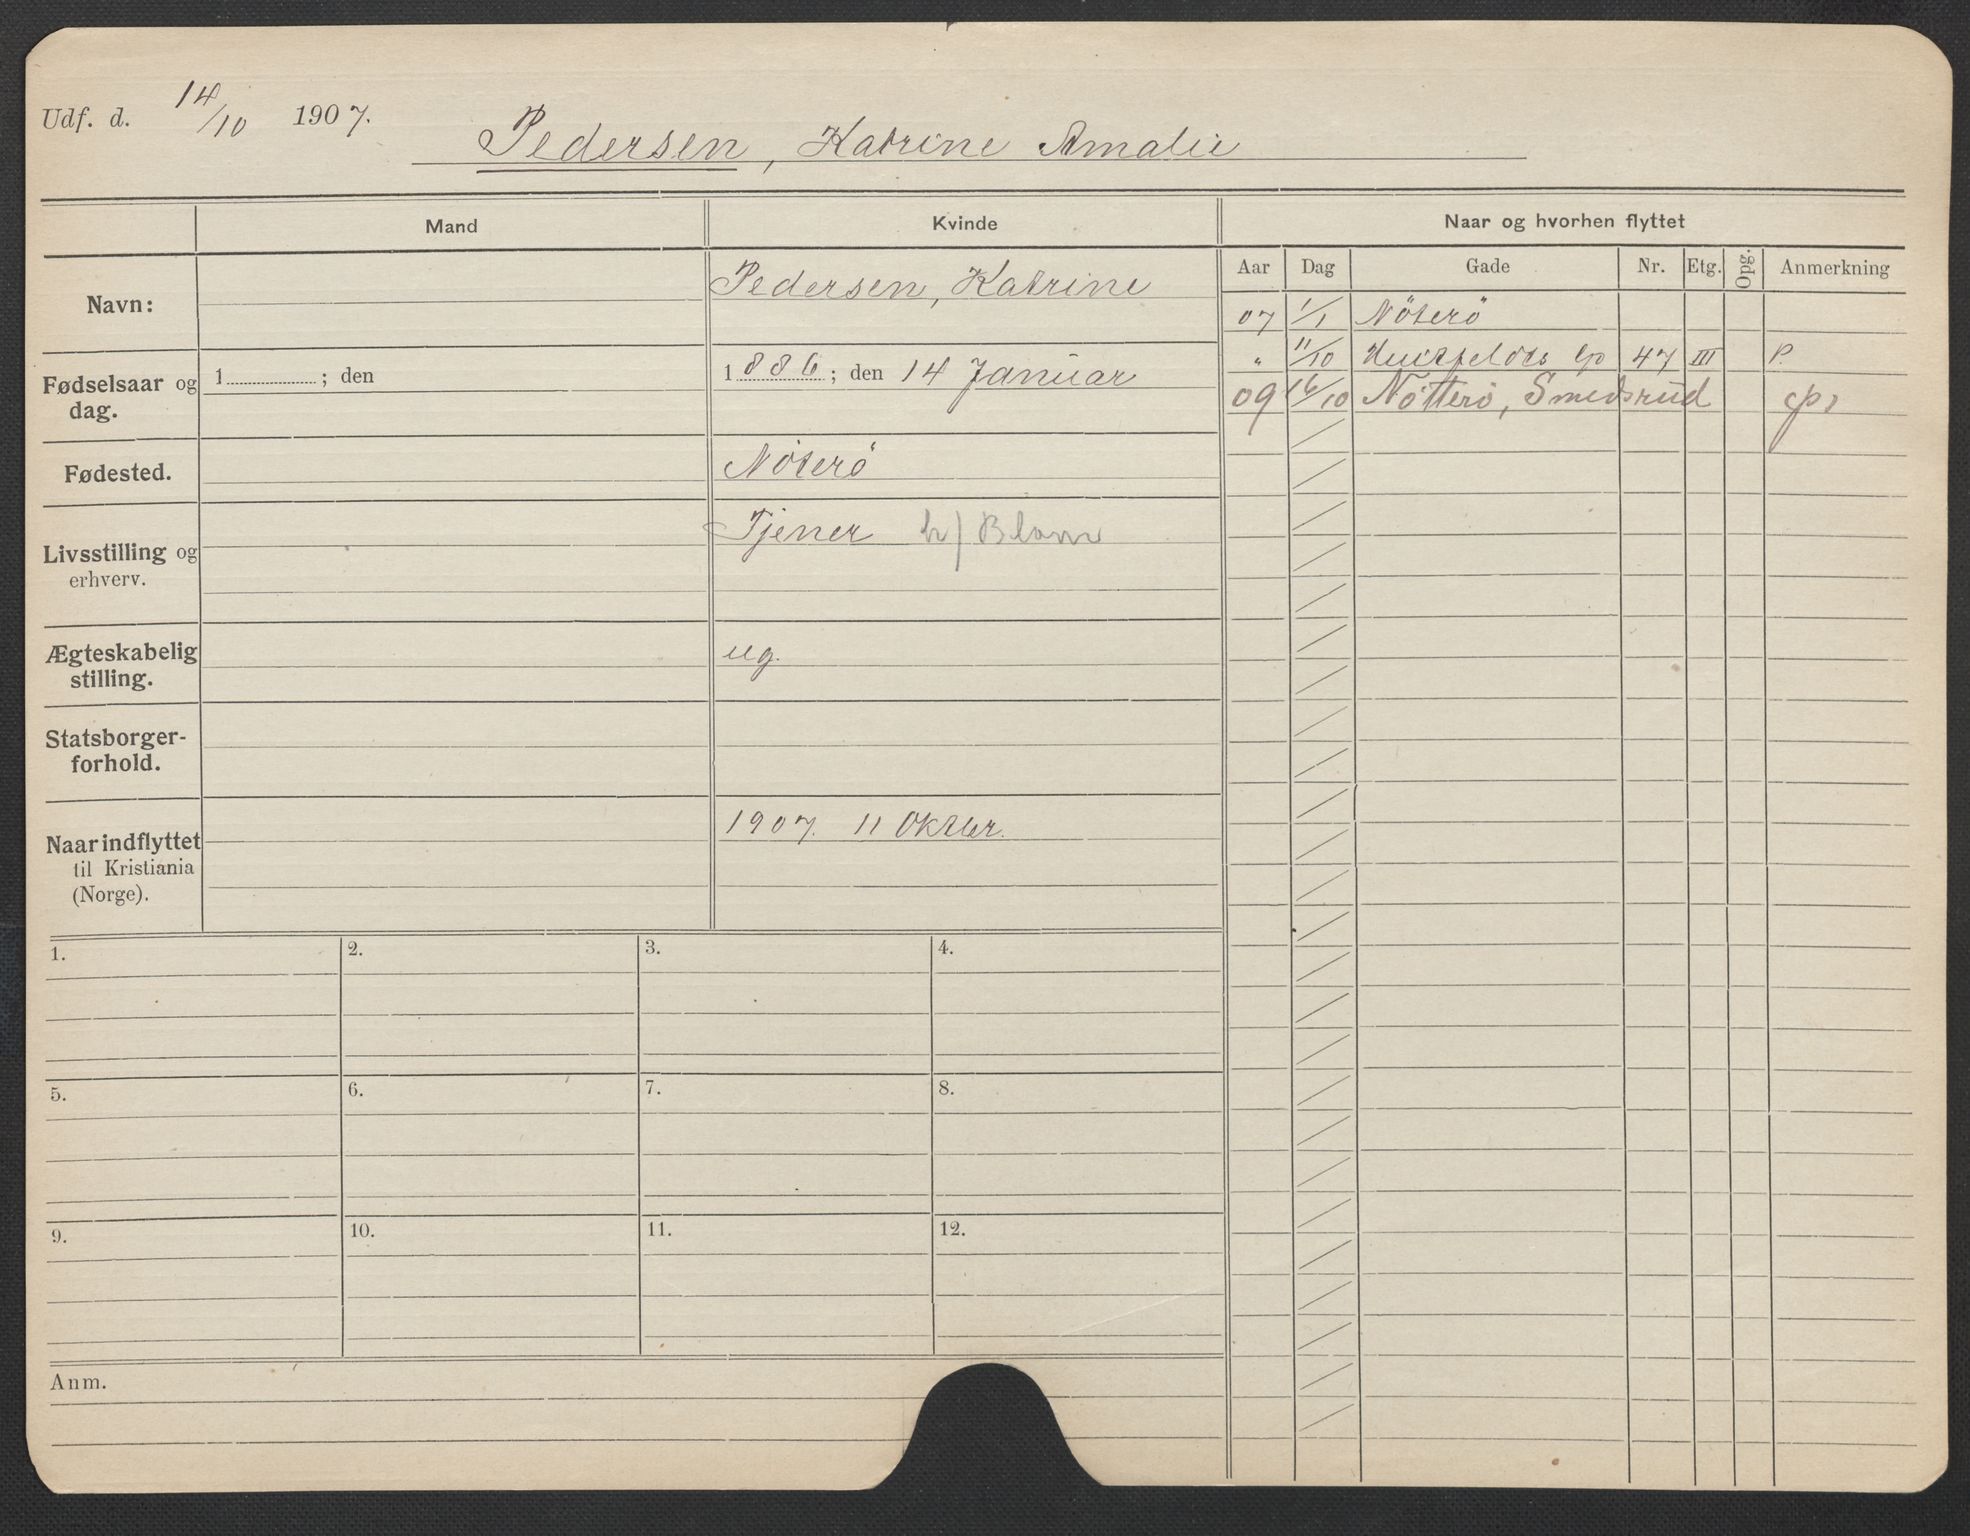 Udf. d. 14/10 1907.
Pedersen, Katrine Amalie
Mand
Kvinde
Naar og hvorhen flyttet
Navn:
Pedersen, Katrine
Aar Dag Gade Nr. Etg. Opg. Anmerkning
07 1/1 Nöterö
" 11/10 Huitfeldts 47 III P.
09 16/10 Nötterö, Smedsrud
Fødselsaar og dag.
1 ; den
1886; den 14 Januar
Fødested.
Nöterö
Livsstilling og erhverv.
Tjener h/ Blom
Ægteskabelig stilling.
ug.
Statsborgerforhold.
Naar indflyttet til Kristiania (Norge).
1907. 11 Oktbr.
1. 2. 3. 4.
5. 6. 7. 8.
9. 10. 11. 12.
Anm.